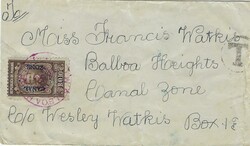 Miss Francis Watkis
Balboa Heights
Canal Zone
c/o Wesley Watkis Box. 18
T